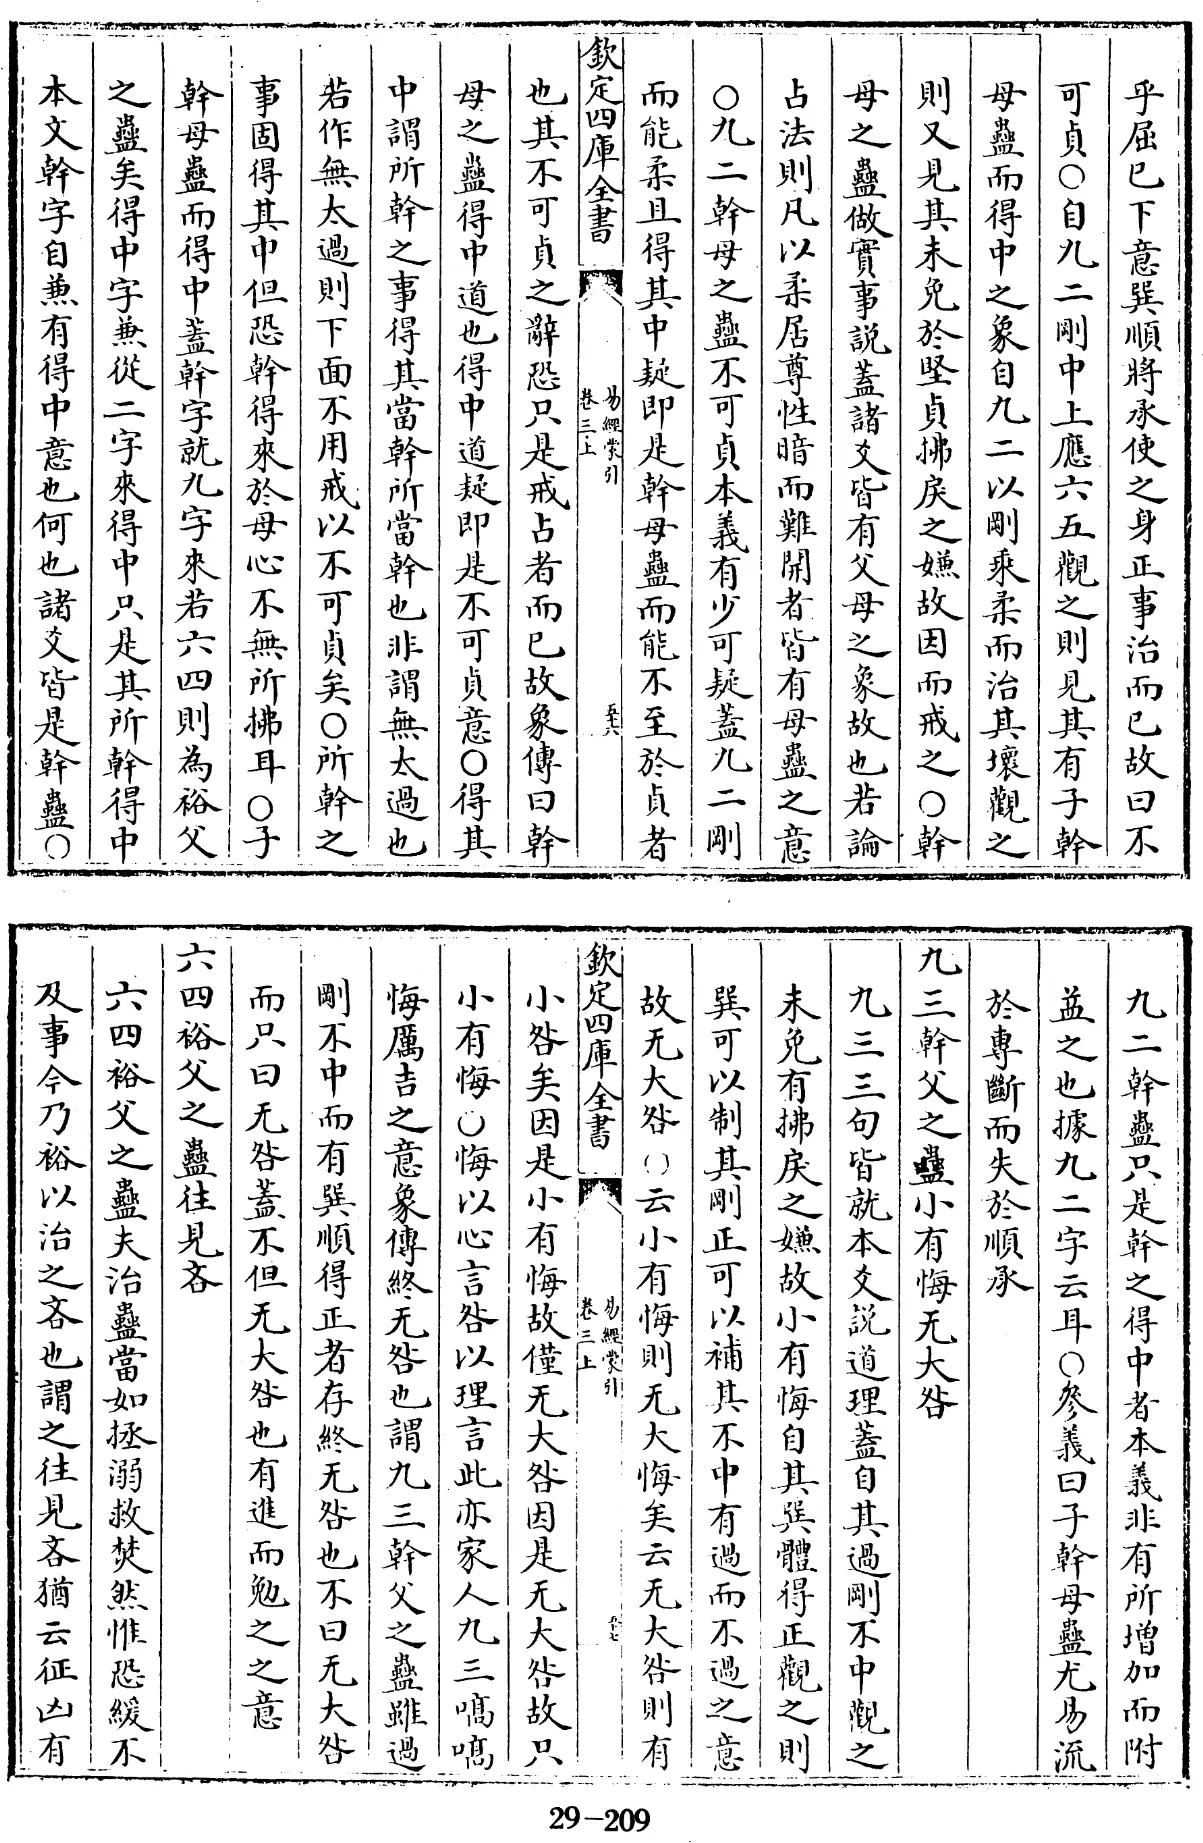 乎屈已下意巽順將承使之身正事治而已故曰不
可貞○自九二剛中上應六五觀之則見其有子幹
母蠱而得中之象自九二以剛乘柔而治其壞觀之
則又見其未免於堅貞拂戾之嫌故因而戒之○幹
母之蠱做實事說蓋諸爻皆有父母之象故也若論
占法則凡以柔居尊性暗而難開者皆有母蠱之意
○九二幹母之蠱不可貞本義有少可疑蓋九二剛
而能柔且得其中疑即是幹母蠱而能不至於貞者
欽定四庫全書
易經蒙引
卷三上
五十六
也其不可貞之辭恐只是戒占者而已故象傳曰幹
母之蠱得中道也得中道疑即是不可貞意○得其
中謂所幹之事得其當幹所當幹也非謂無太過也
若作無太過則下面不用戒以不可貞矣○所幹之
事固得其中但恐幹得來於母心不無所拂耳○子
幹母蠱而得中蓋幹字就九字來若六四則為裕父
之蠱矣得中字兼從二字來得中只是其所幹得中
本文幹字自兼有得中意也何也諸爻皆是幹蠱○
九二幹蠱只是幹之得中者本義非有所增加而附
益之也據九二字云耳○參義曰子幹母蠱尤易流
於專斷而失於順承
九三幹父之蠱小有悔无大咎
九三三句皆就本爻說道理蓋自其過剛不中觀之
未免有拂戾之嫌故小有悔自其巽體得正觀之則
巽可以制其剛正可以補其不中有過而不過之意
故无大咎○云小有悔則无大悔矣云无大咎則有
欽定四庫全書
易經蒙引
卷三上
五十七
小咎矣因是小有悔故僅无大咎因是无大咎故只
小有悔○悔以心言咎以理言此亦家人九三嗃嗃
悔厲吉之意象傳終无咎也謂九三幹父之蠱雖過
剛不中而有巽順得正者存終无咎也不曰无大咎
而只曰无咎蓋不但无大咎也有進而勉之之意
六四裕父之蠱往見吝
六四裕父之蠱夫治蠱當如拯溺救焚然惟恐緩不
及事今乃裕以治之吝也謂之往見吝猶云征凶有
29-209